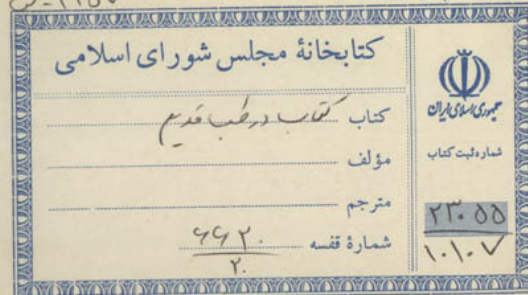 کتابخانهٔ مجلس شورای اسلامی
کتاب کتاب در طب قدیم
مؤلف
مترجم
شمارهٔ قفسه ۶۶۲۰
۲۰
جمهوری اسلامی ایران
شماره ثبت کتاب
۲۳۰۵۵
۱۰۱۰۷